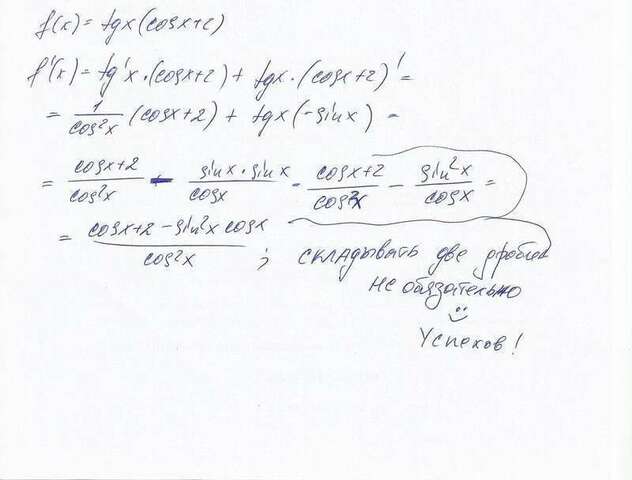 f(x) = tgx(cosx+2)
f'(x) = tg'x·(cosx+2) + tgx·(cosx+2)' =
= 1/cos²x (cosx+2) + tgx(-sinx) =
= cosx+2/cos²x - sinx·sinx/cosx = cosx+2/cos²x - sin²x/cosx =
= cosx+2-sin²x cosx/cos²x ; складывать две дроби
не обязательно
Успехов!